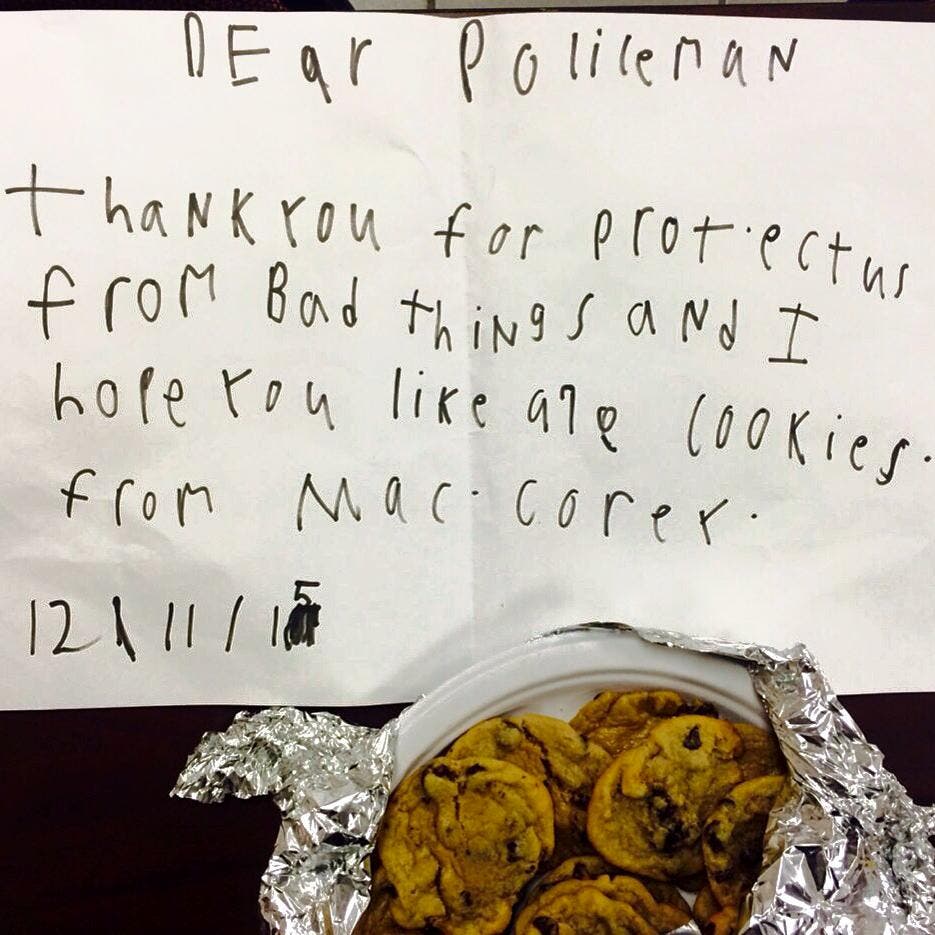 DEar PolicemaN
thaNK you for prot.ectus
from Bad thiNgs aNd I
hope you like are cookies.
from Mac. corey.
12\11/15